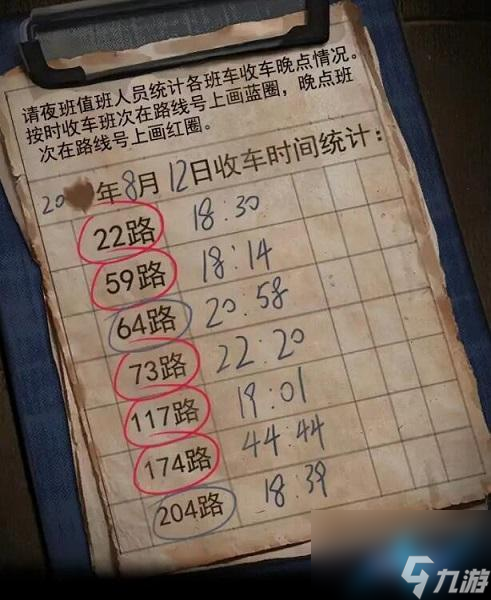 请夜班值班人员统计各班车收车晚点情况。
按时收车班次在路线号上画蓝圈，晚点班
次在路线号上画红圈。
20 年8月12日收车时间统计：
22路 18:30
59路 18:14
64路 20:58
73路 22:20
117路 19:01
174路 44:44
204路 18:39
九游